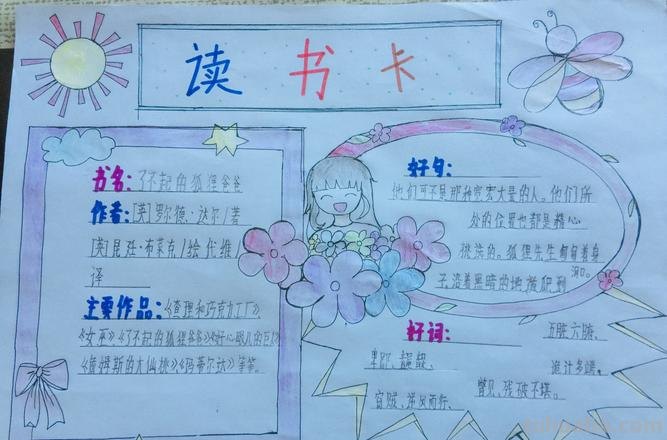 读书卡
书名:了不起的狐狸爸爸
作者:[英]罗尔德·达尔/著
[英]昆廷·布莱克/绘 代维/
译
主要作品:《查理和巧克力工厂》、
《女巫》《了不起的狐狸爸爸》《好心眼儿的巨人》
《詹姆斯的大仙桃》《玛蒂尔达》等等。
好句:
他们可不是那种宽宏大量的人。他们所
处的位置也都是精心
挑选的。狐狸先生匍匐着身
子,沿着黑暗的地道爬到
洞口。
好词:
五脏六腑、
卑鄙、
诡计多端、
逆风而行、
瞥见、残破不堪。